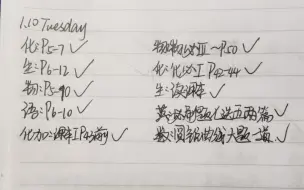 1.10 Tuesday
化:P5-7 ✓
生:P6-12 ✓
物:P5-90 ✓
语:P6-10 ✓
化加:课车I P45前 ✓
物:物加III~P50 ✓
化:化加I P42-44 ✓
生:读课本 ✓
英:七选五两篇 ✓
数:圆锥曲线大题一道 ✓